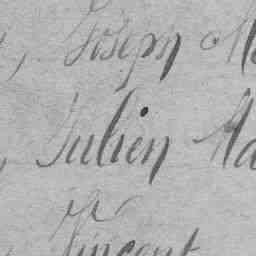 , Joseph M
, Julien Ma
Vincent